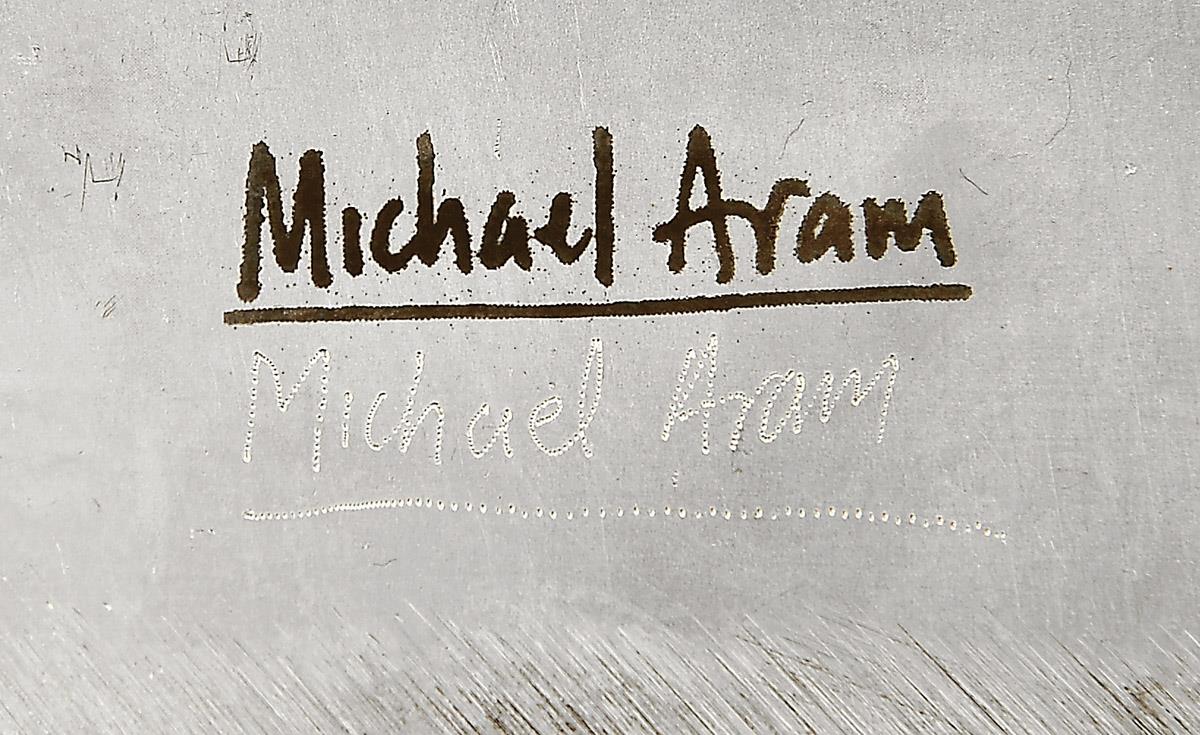 Michael Aram
Michael Aram